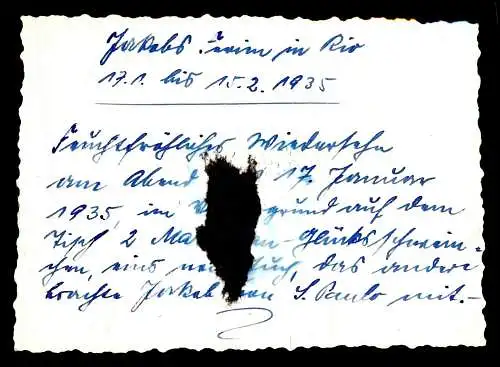 Jakobs Ferien in Rio
17.1. bis 15.2. 1935
Feuchtfröhliches Wiedersehn
am Abend 17. Januar
1935, im grund auf dem
Tisch 2 Glücksschwein-
chen, eins das andere
brachte Jakob von S. Paulo mit.-